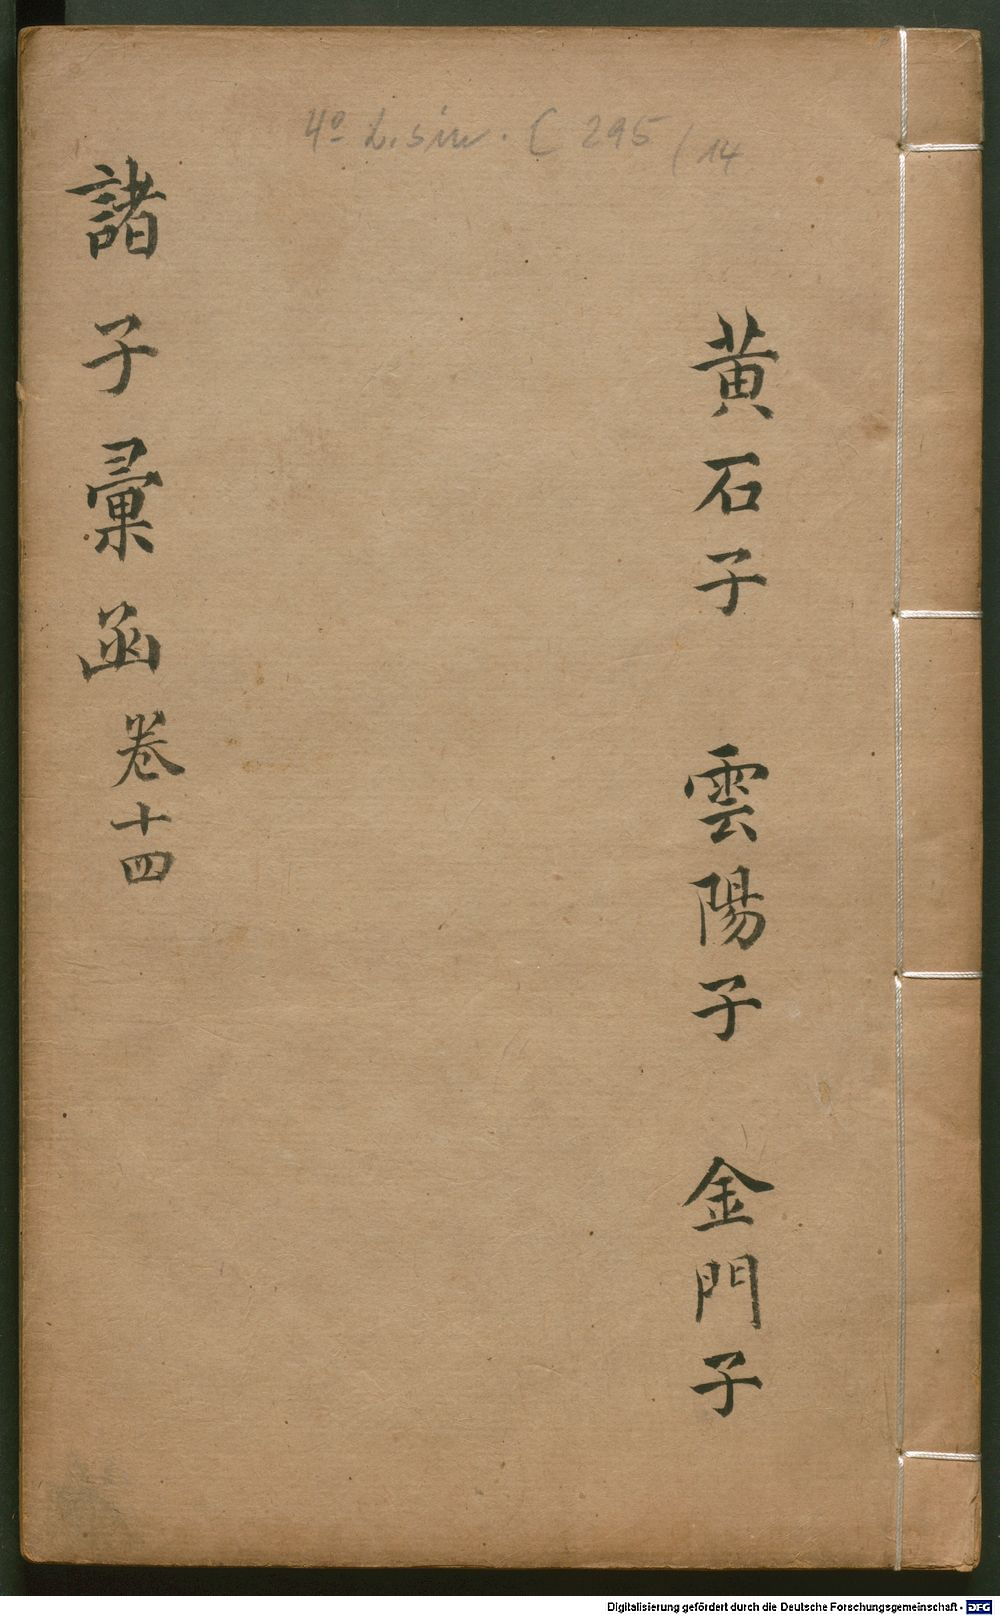 4º L. sin. C 295/14
黄石子 雲陽子 金門子
諸子彙函 卷十四
Digitalisierung gefördert durch die Deutsche Forschungsgemeinschaft - DFG